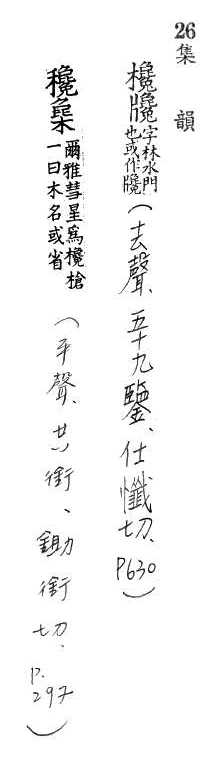 26 集 韻
欃 字林水門
也或作
（去聲、五十九鑒、仕懺切、P630）
欃 爾雅彗星爲欃槍
一曰木名或省
（平聲、廿八銜、鋤銜切、p.297）